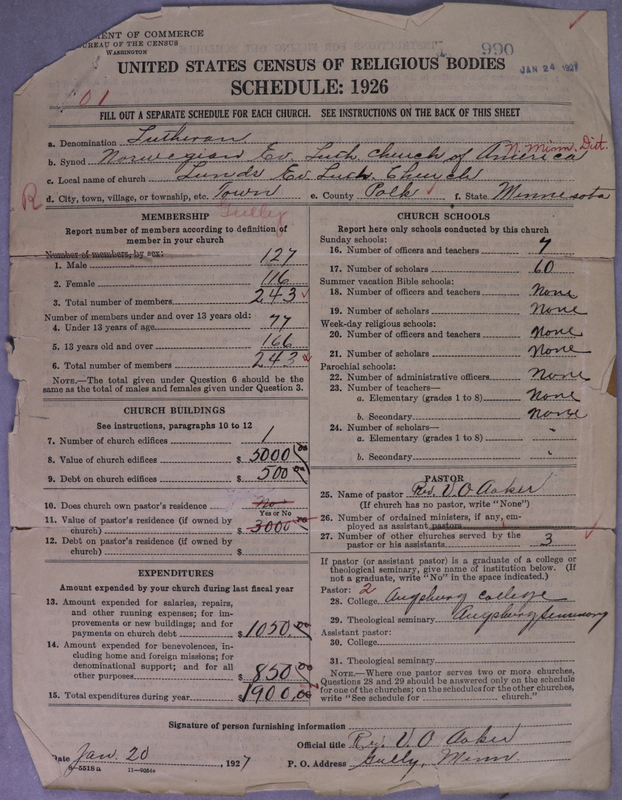 MENT OF COMMERCE
BUREAU OF THE CENSUS
WASHINGTON
990
JAN 24 1927
UNITED STATES CENSUS OF RELIGIOUS BODIES
SCHEDULE: 1926
01
FILL OUT A SEPARATE SCHEDULE FOR EACH CHURCH. SEE INSTRUCTIONS ON THE BACK OF THIS SHEET
a. Denomination Lutheran
b. Synod Norwegian Ev. Luth church of America N. Minn. Dist.
c. Local name of church Lunds Ev. Luth. Church
R d. City, town, village, or township, etc. Town e. County Polk f. State Minnesota
Gully
MEMBERSHIP
Report number of members according to definition of member in your church
Number of members, by sex:
1. Male 127
2. Female 116
3. Total number of members 243
Number of members under and over 13 years old:
4. Under 13 years of age 77
5. 13 years old and over 166
6. Total number of members 243
NOTE.—The total given under Question 6 should be
same as the total of males and females given under Question 3.
CHURCH BUILDINGS
See instructions, paragraphs 10 to 12
7. Number of church edifices 1
8. Value of church edifices $ 5000.00
9. Debt on church edifices $ 500.00
10. Does church own pastor's residence No
Yes or No
11. Value of pastor's residence (if owned by
church) $ 3000.00
12. Debt on pastor's residence (if owned by
church) $
EXPENDITURES
Amount expended by your church during last fiscal year
13. Amount expended for salaries, repairs,
and other running expenses; for im-
provements or new buildings; and for
payments on church debt $ 1050.00
14. Amount expended for benevolences, in-
cluding home and foreign missions; for
denominational support; and for all
other purposes $ 850.00
15. Total expenditures during year $ 1900.00
CHURCH SCHOOLS
Report here only schools conducted by this church
Sunday schools:
16. Number of officers and teachers 7
17. Number of scholars 60
Summer vacation Bible schools:
18. Number of officers and teachers None
19. Number of scholars None
Week-day religious schools:
20. Number of officers and teachers None
21. Number of scholars None
Parochial schools:
22. Number of administrative officers None
23. Number of teachers—
a. Elementary (grades 1 to 8) None
b. Secondary None
24. Number of scholars—
a. Elementary (grades 1 to 8) "
b. Secondary "
PASTOR
25. Name of pastor Rev. V. O. Aaker
(If church has no pastor, write "None")
26. Number of ordained ministers, if any, em-
ployed as assistant pastors
27. Number of other churches served by the
pastor or his assistants 3
If pastor (or assistant pastor) is a graduate of a college or
theological seminary, give name of institution below. (If
not a graduate, write "No" in the space indicated.)
Pastor: 2
28. College Augsburg college
29. Theological seminary Augsburg Seminary
Assistant pastor:
30. College
31. Theological seminary
NOTE.—Where one pastor serves two or more churches,
Questions 28 and 29 should be answered only on the schedule
for one of the churches; on the schedules for the other churches,
write "See schedule for church."
Signature of person furnishing information
Official title Rev. V. O. Aaker
Date Jan. 20, 1927 P. O. Address Gully, Minn
8-5518a 11-9054